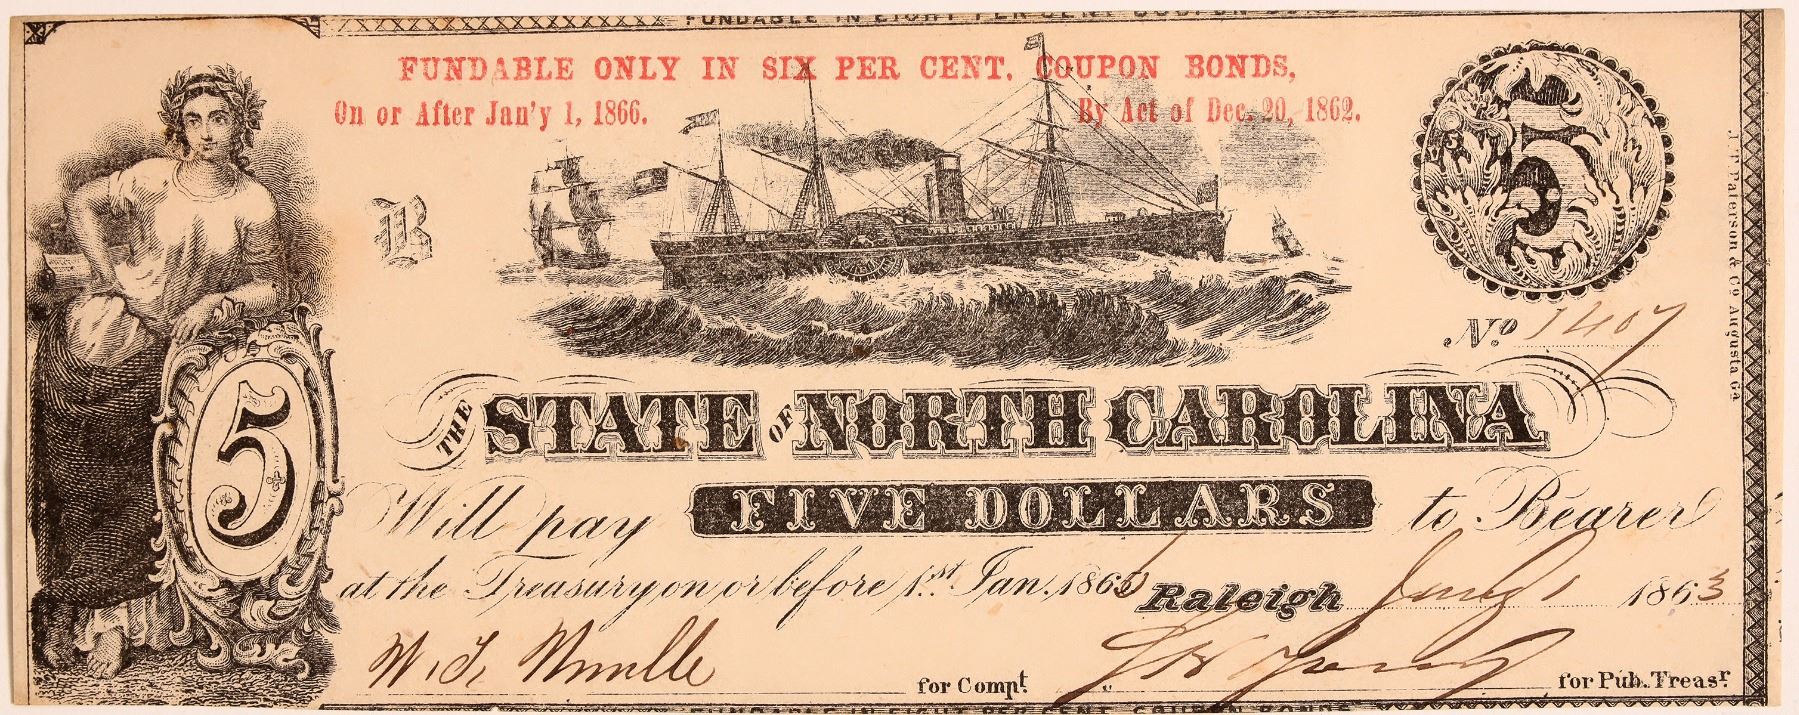 FUNDABLE IN EIGHT PER CENT COUPON BONDS
FUNDABLE ONLY IN SIX PER CENT. COUPON BONDS,
On or After Jan'y 1, 1866.
By Act of Dec. 20, 1862.
B
5
5
J. T. Paterson & Co Augusta Ga
No. 1407
THE STATE OF NORTH CAROLINA
Will pay FIVE DOLLARS to Bearer
at the Treasury on or before 1st Jan. 1866
Raleigh Jany 1 1863
for Compt.
for Pub. Treasr.
FUNDABLE IN EIGHT PER CENT COUPON BONDS